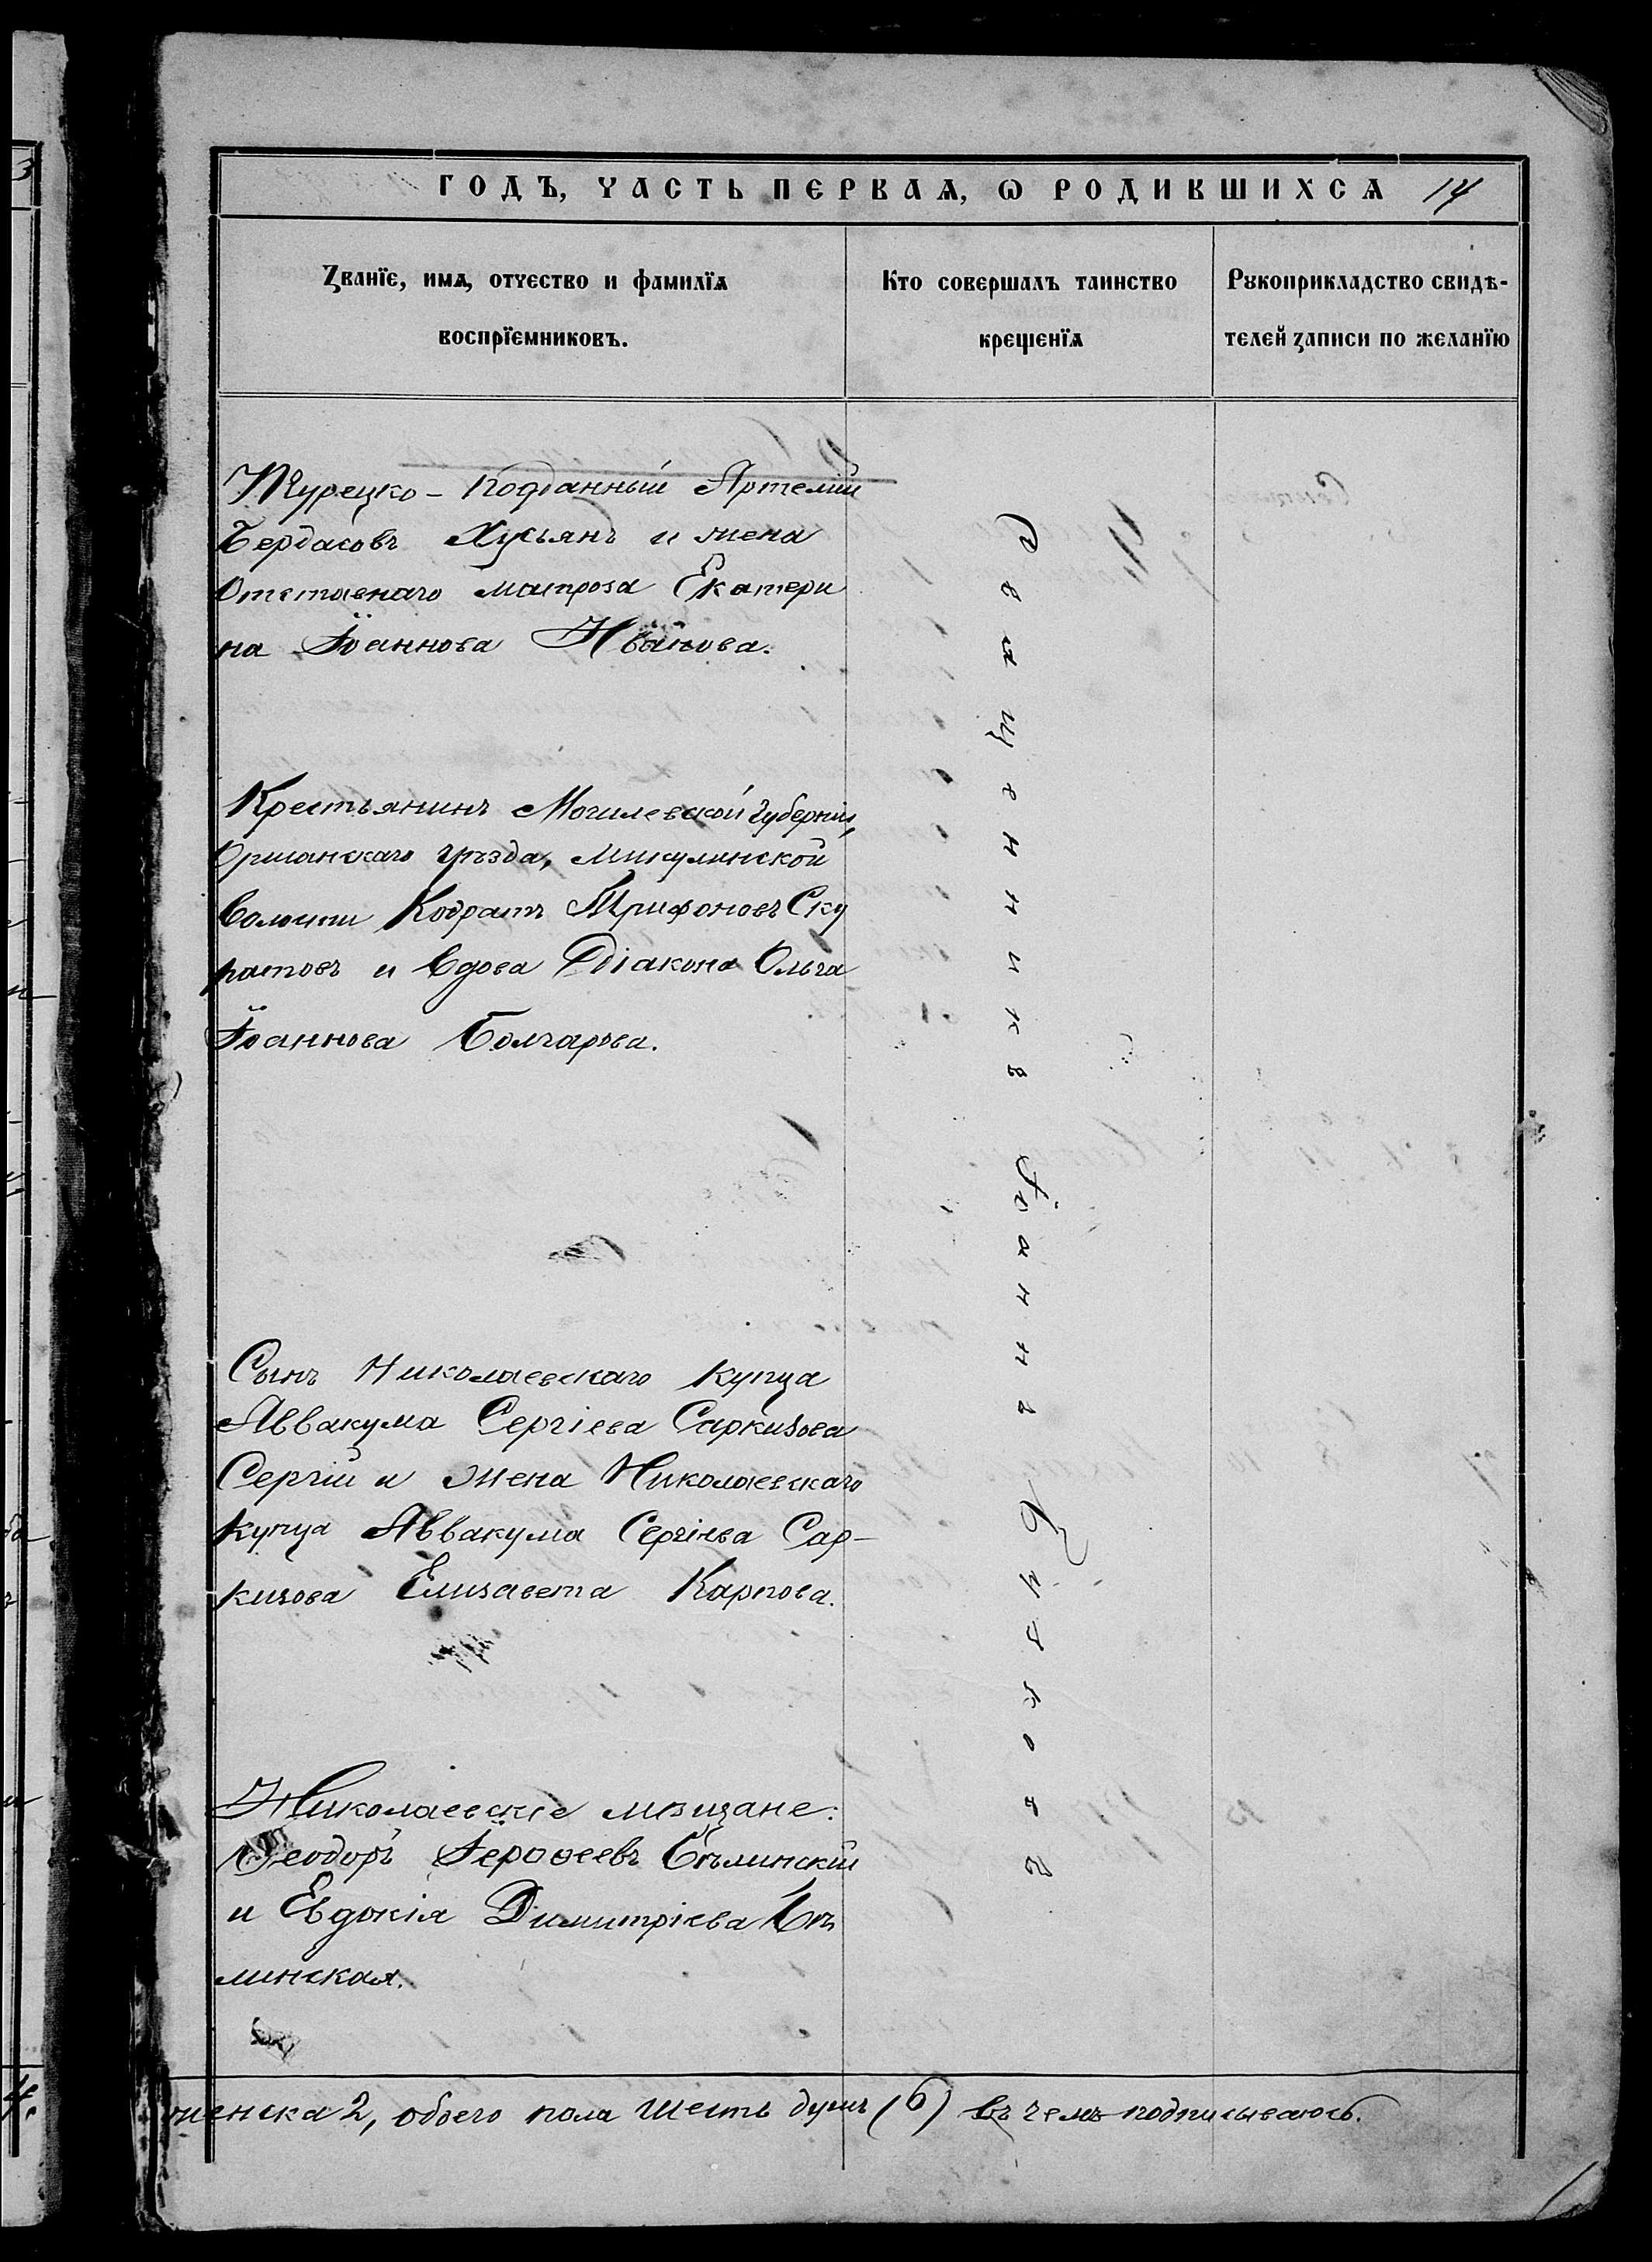 ГОДЪ, ЧАСТЬ ПЕРВАѦ, Ѡ РОДИВШИХСѦ 14
Званїе, имѧ, отчество и фамилїѧ
воспрїемниковъ.
Кто совершалъ таинство
крещенїѧ
Рꙋкоприкладство свидѣ-
телей записи по желанїю
Турецко-подданный Артемій
Бердасовъ Хусьянъ и жена
Отставнаго матроза Екатери
на Іоаннова Иванова.
Крестьянинъ Могилевской губерніи,
Оршанскаго уѣзда, Микулинской
Волости Кодратъ Трифоновъ Ску
ратовъ и вдова Діакона Ольга
Іоаннова Болгарова.
Сынъ Николаевскаго купца
Аввакума Сергіева Саркизова
Сергій и жена Николаевскаго
купца Аввакума Сергіева Сар-
кизова Елизавета Карпова.
Николаевскіе мѣщане:
Ѳеодоръ Іероѳеевъ Бѣлинскій
и Евдокія Димитріева Бѣ
линская.
Священникъ Іоаннъ
женска 2, обоего пола шесть душъ (6) въ чемъ подписываюсь.